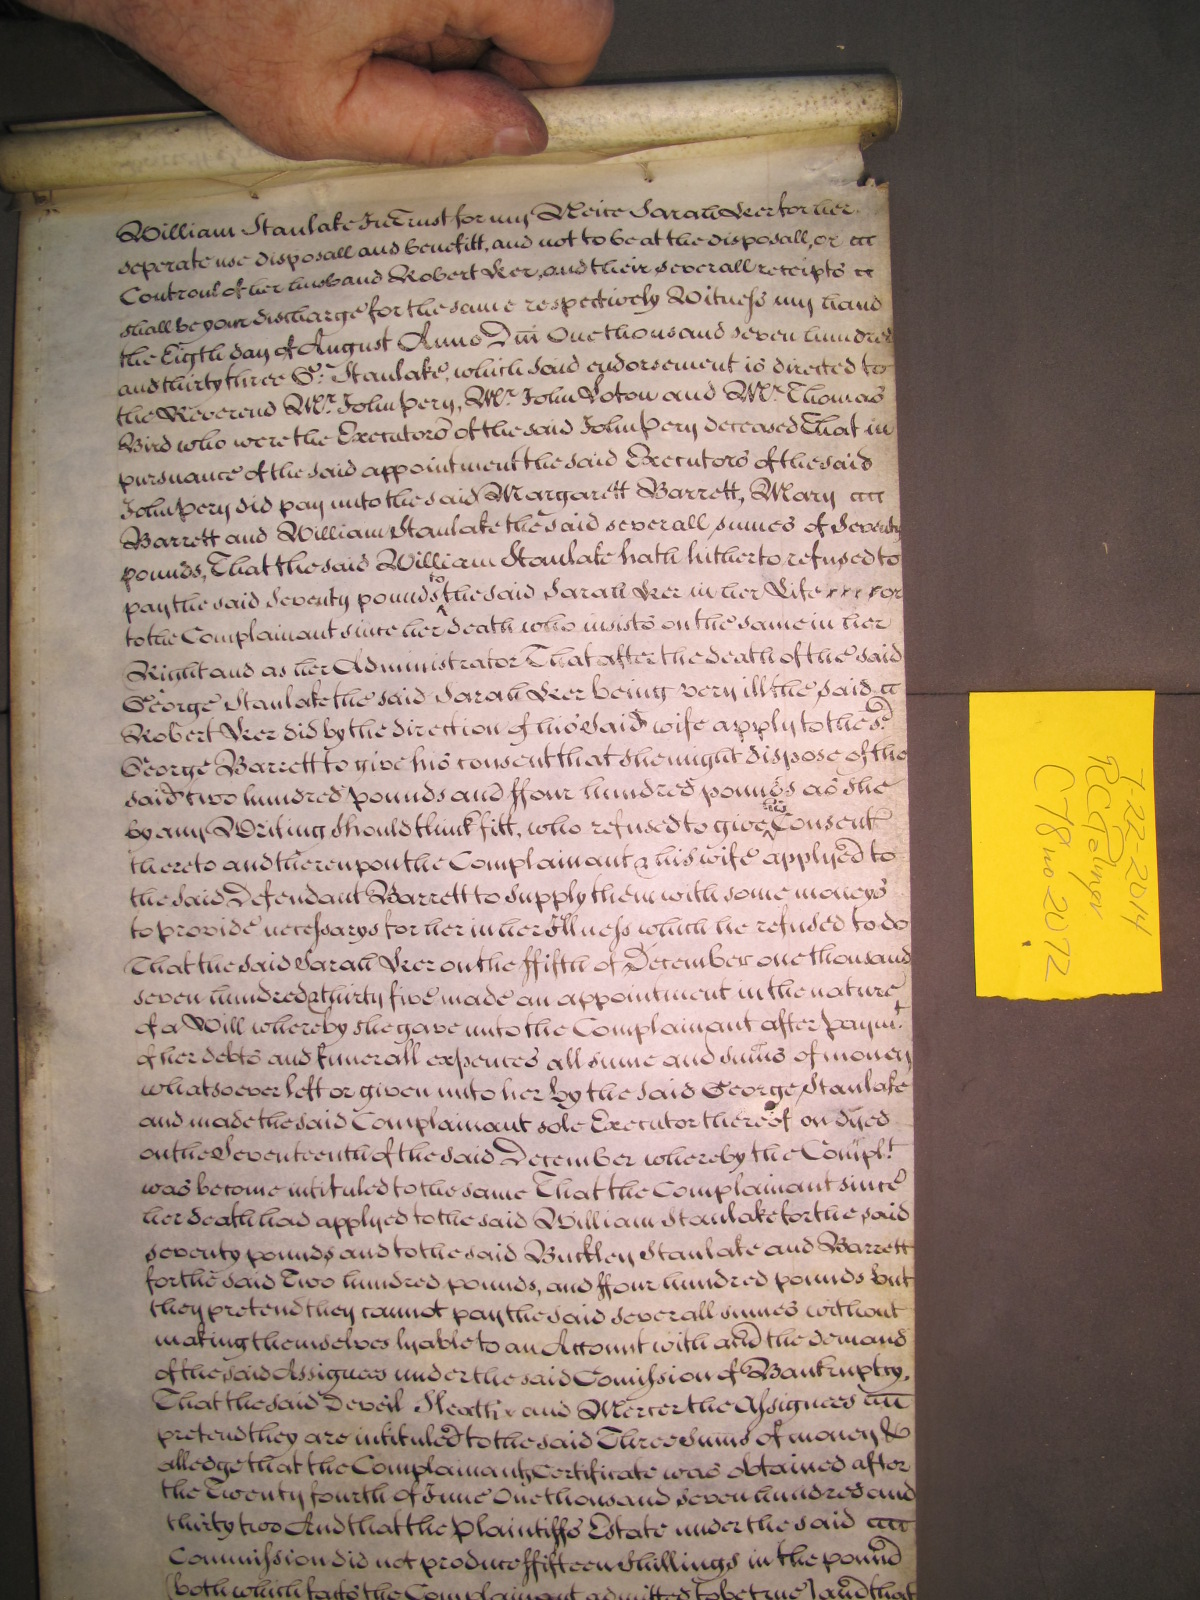 William Stanlake In Trust for my Neice Sarah Ker for her
seperate use disposall and benefitt, and not to be at the disposall, or
Controul of her husband Robert Ker, and their severall receipts
shall be your discharge for the same respectively Witness my hand
the Eigth day of August Anno Dni One thousand seven hundred
and thirty three G: Stanlake, which said endorsement is directed to
the Reverend Mr. John Pery, Mr. John Loton and Mr. Thomas
Bird who were the Executors of the said John Pery deceased That in
pursuance of the said appointment the said Executors of the said
John Pery did pay unto the said Margarett Barrett, Mary
Barrett and William Stanlake the said severall sumes of Seventy
pounds, That the said William Stanlake hath hitherto refused to
pay the said Seventy pounds to the said Sarah Ker in her Life or
to the Complainant since her death who insists on the same in her
Right and as her Administrator That after the death of the said
George Stanlake the said Sarah Ker being very ill the said
Robert Ker did by the direction of his said wife apply to the sd
George Barrett to give his consent that she might dispose of the
said two hundred pounds and ffour hundred pounds as she
by any Writing should think fitt, who refused to give his Consent
thereto and thereupon the Complainant & his wife applyed to
the said Defendant Barrett to supply them with some moneys
to provide necessarys for her in her Illness which he refused to do
That the said Sarah Ker on the ffifth of December one thousand
seven hundred & thirty five made an appointment in the nature
of a Will whereby she gave unto the Complainant after paymt
of her debts and funerall expences all sume and sums of money
whatsoever left or given unto her by the said George Stanlake
and made the said Complainant sole Executor thereof on dyed
on the Seventeenth of the said December whereby the Complt
was become intituled to the same That the Complainant since
her death had applyed to the said William Stanlake for the said
seventy pounds and to the said Buckley Stanlake and Barrett
for the said Two hundred pounds, and ffour hundred pounds but
they pretend they cannot pay the said severall sumes without
making themselves lyable to an Account with and the demand
of the said Assignees under the said Comission of Bankruptcy,
That the said Heath and Mercer the Assignees
pretend they are intituled to the said Three sums of money &
alledge that the Complainants Certificate was obtained after
the Twenty fourth of June One thousand seven hundred and
thirty two And that the Plaintiffs Estate under the said
Commission did not produce ffifteen Shillings in the pound
(both which facts the Complainant admitted to be true) and that
7-22-2014
C78 no 2072